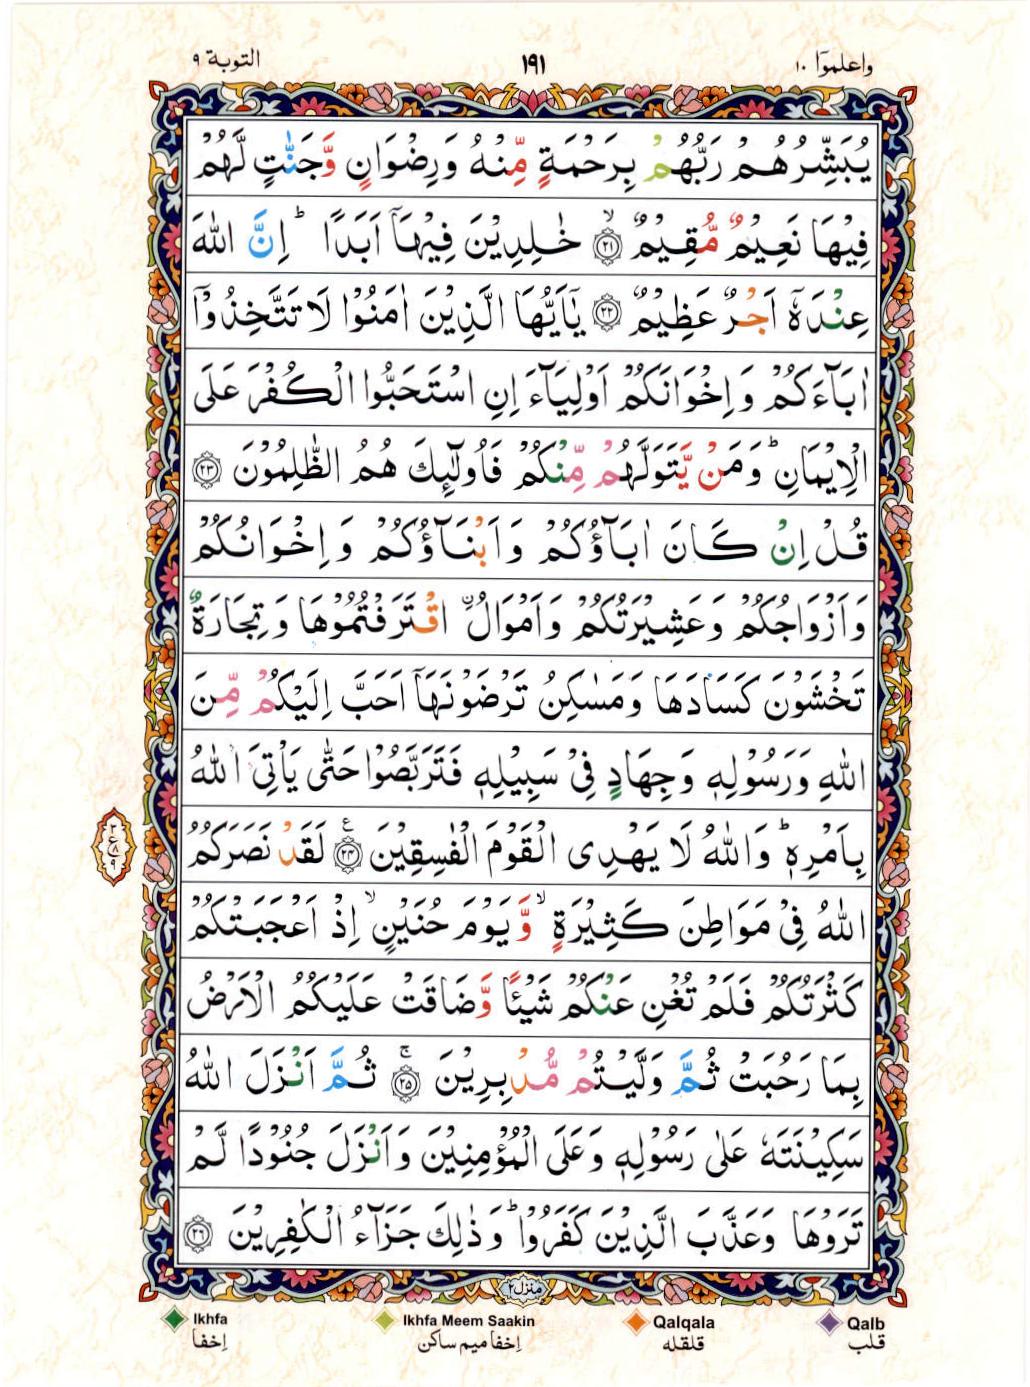 واعلموٓا ١٠
١٩١
التوبة ٩
يُبَشِّرُهُمْ رَبُّهُمْ بِرَحْمَةٍ مِّنْهُ وَرِضْوَانٍ وَّجَنّٰتٍ لَّهُمْ
فِيْهَا نَعِيْمٌ مُّقِيْمٌ ۙ ﴿٢١﴾ خٰلِدِيْنَ فِيْهَاۤ اَبَدًا ؕ اِنَّ اللّٰهَ
عِنْدَهٗۤ اَجْرٌ عَظِيْمٌ ﴿٢٢﴾ يٰۤاَيُّهَا الَّذِيْنَ اٰمَنُوْا لَا تَتَّخِذُوْۤا
اٰبَآءَكُمْ وَاِخْوَانَكُمْ اَوْلِيَآءَ اِنِ اسْتَحَبُّوا الْكُفْرَ عَلَى
الْاِيْمَانِ ؕ وَمَنْ يَّتَوَلَّهُمْ مِّنْكُمْ فَاُولٰٓئِكَ هُمُ الظّٰلِمُوْنَ ﴿٢٣﴾
قُلْ اِنْ كَانَ اٰبَآؤُكُمْ وَاَبْنَآؤُكُمْ وَاِخْوَانُكُمْ
وَاَزْوَاجُكُمْ وَعَشِيْرَتُكُمْ وَاَمْوَالُ ۨاقْتَرَفْتُمُوْهَا وَتِجَارَةٌ
تَخْشَوْنَ كَسَادَهَا وَمَسٰكِنُ تَرْضَوْنَهَاۤ اَحَبَّ اِلَيْكُمْ مِّنَ
اللّٰهِ وَرَسُوْلِهٖ وَجِهَادٍ فِيْ سَبِيْلِهٖ فَتَرَبَّصُوْا حَتّٰى يَاْتِيَ اللّٰهُ
بِاَمْرِهٖ ؕ وَاللّٰهُ لَا يَهْدِى الْقَوْمَ الْفٰسِقِيْنَ ﴿٢٤﴾ ع لَقَدْ نَصَرَكُمُ
اللّٰهُ فِيْ مَوَاطِنَ كَثِيْرَةٍ ۙ وَّيَوْمَ حُنَيْنٍ ۙ اِذْ اَعْجَبَتْكُمْ
كَثْرَتُكُمْ فَلَمْ تُغْنِ عَنْكُمْ شَيْئًا وَّضَاقَتْ عَلَيْكُمُ الْاَرْضُ
بِمَا رَحُبَتْ ثُمَّ وَلَّيْتُمْ مُّدْبِرِيْنَ ۚ ﴿٢٥﴾ ثُمَّ اَنْزَلَ اللّٰهُ
سَكِيْنَتَهٗ عَلٰى رَسُوْلِهٖ وَعَلَى الْمُؤْمِنِيْنَ وَاَنْزَلَ جُنُوْدًا لَّمْ
تَرَوْهَا وَعَذَّبَ الَّذِيْنَ كَفَرُوْا ؕ وَذٰلِكَ جَزَآءُ الْكٰفِرِيْنَ ﴿٢٦﴾
منزل ٢
Ikhfa
إخفا
Ikhfa Meem Saakin
إخفا ميم ساكن
Qalqala
قلقله
Qalb
قلب